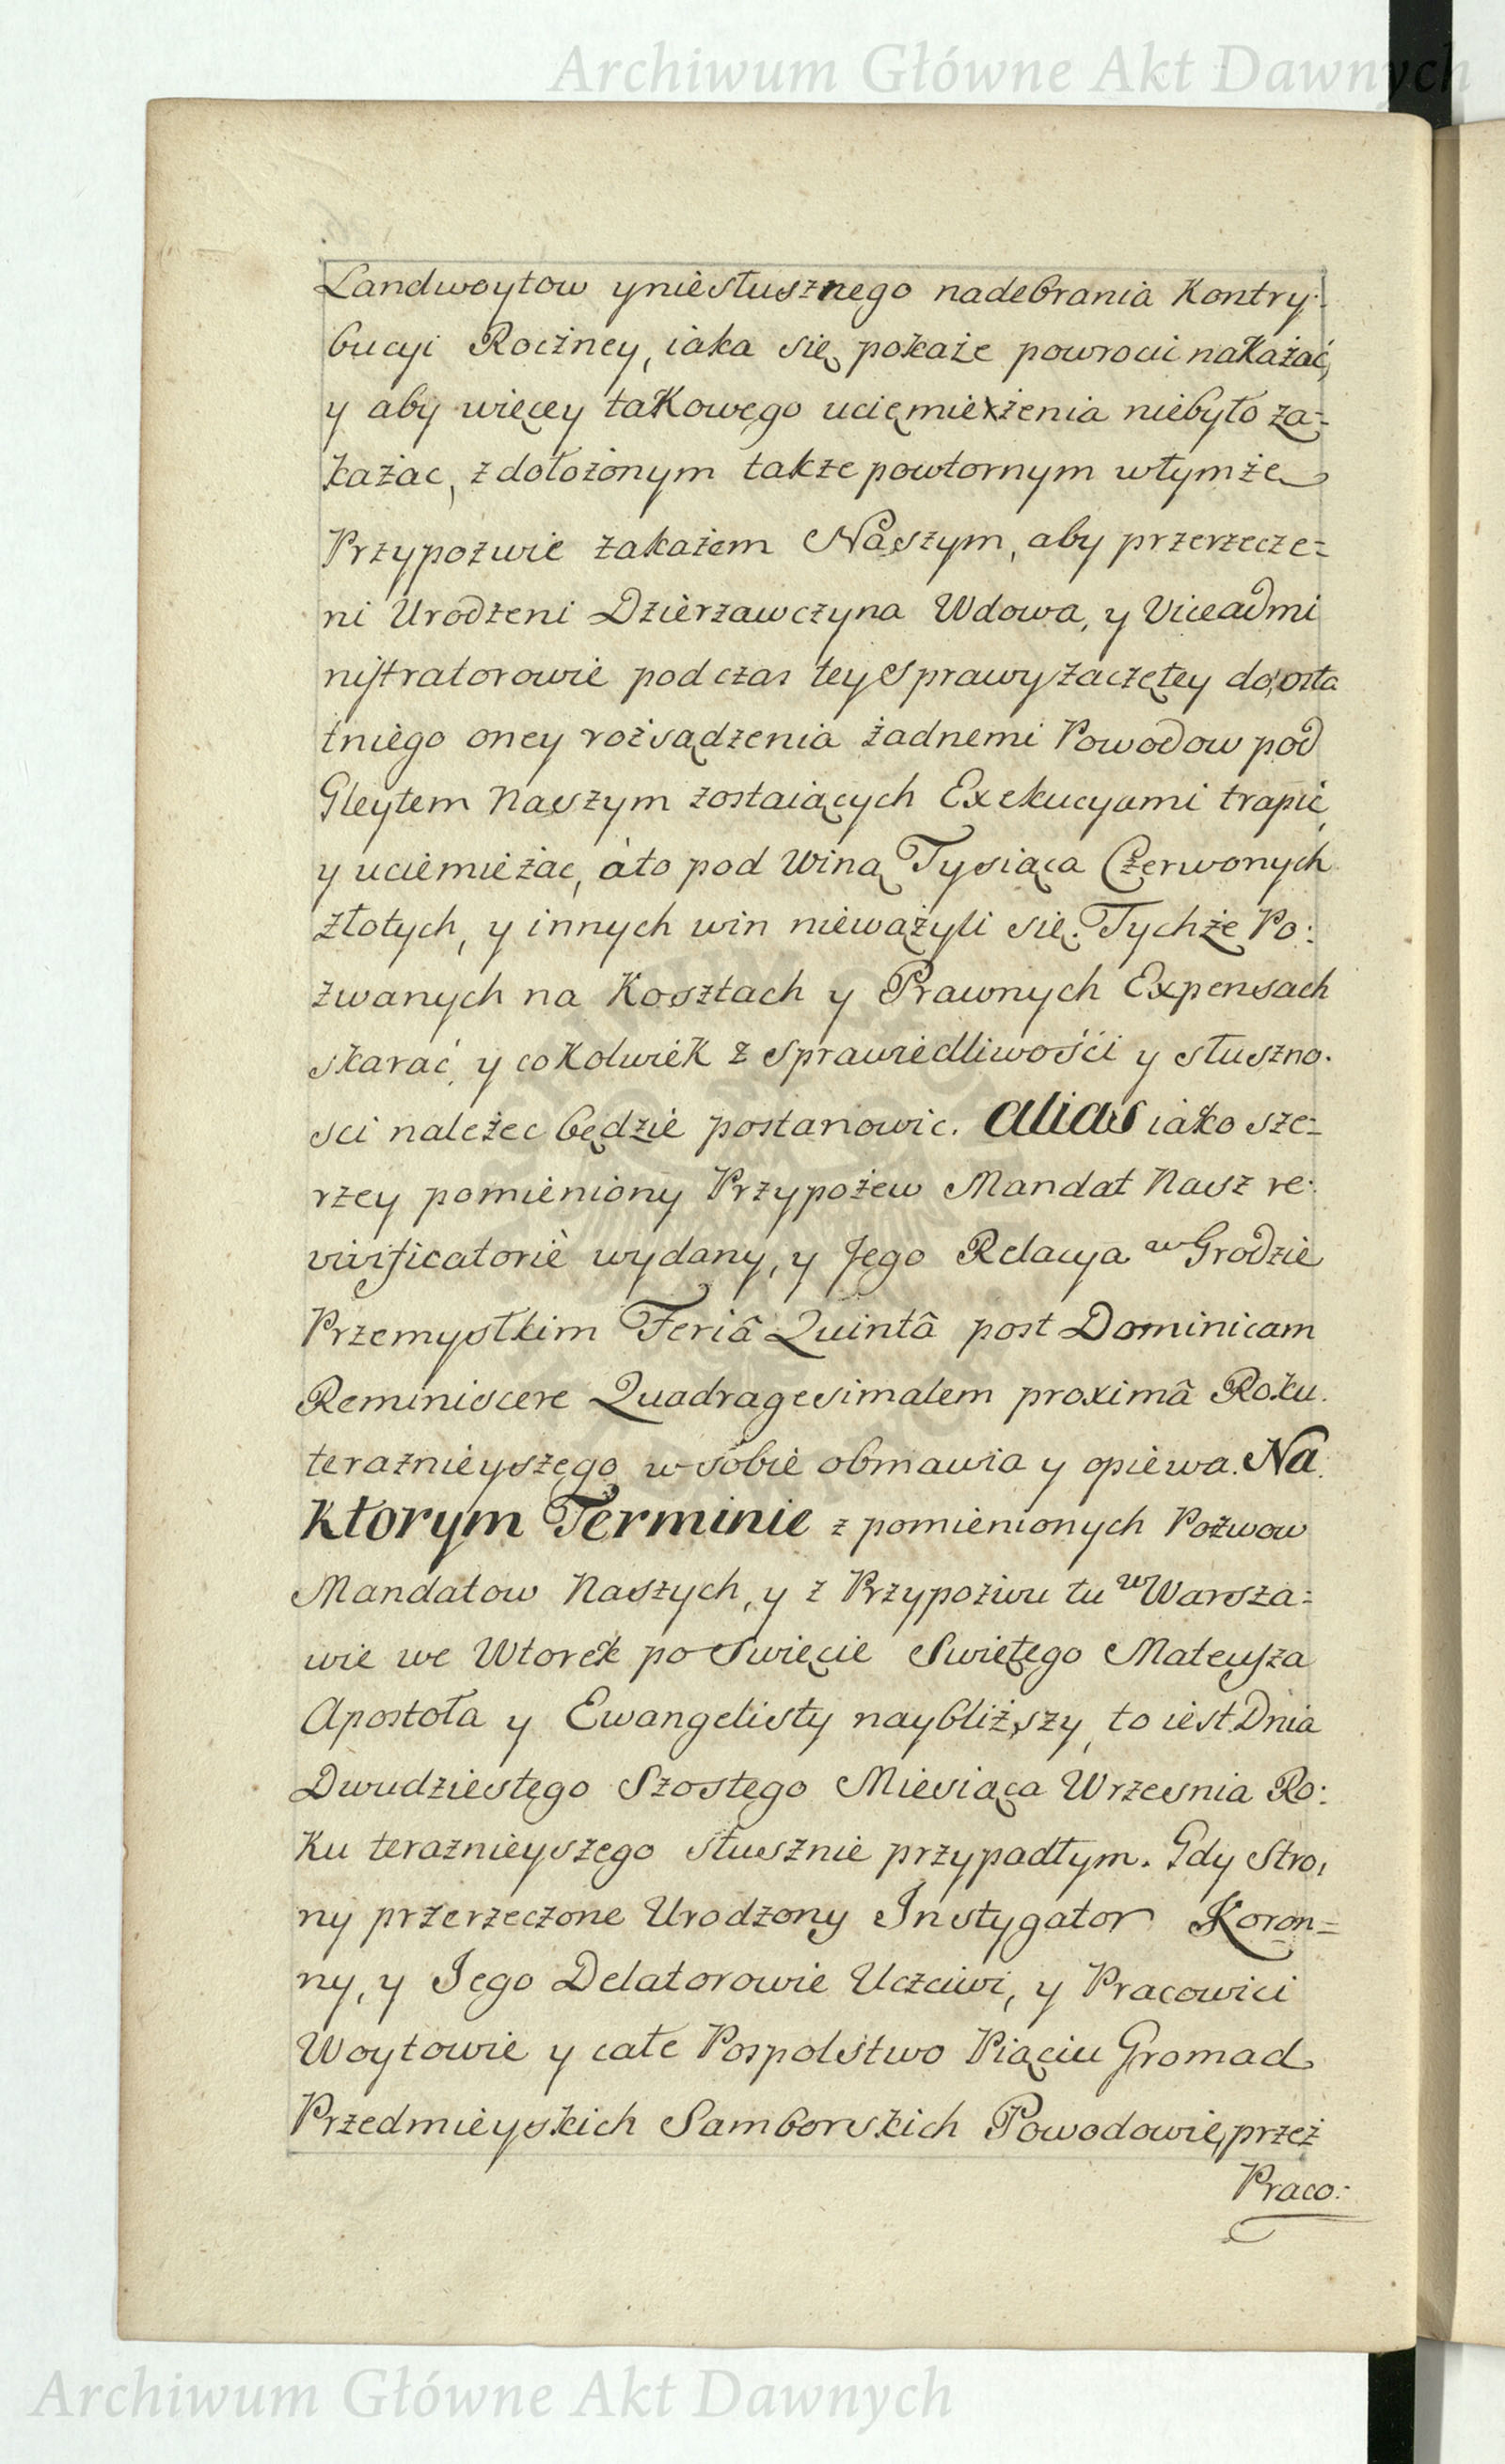 Archiwum Główne Akt Dawnych
Landwoytow y niesłusznego nadebrania Kontry-
bucyi Rocżney, iaka się pokaże powrocić nakażać,
y aby więcey takowego uciemiężenia niebyło za-
każac, z dołożonym także powtornym w tymże
Przypozwie zakażem Naszym, aby przerzecze=
ni Urodzeni Dzierzawczyna Wdowa, y Viceadmi
nistratorowie podczas tey sprawy zaczętey do osta
tniego oney rożsądzenia żadnemi Powodow pod
Gleytem Naszym zostaiących Exekucyami trapić,
y uciemieżac, à to pod Winą Tysiąca Czerwonych
złotych, y innych win nieważyli się. Tychże Po:
zwanych na Kosztach y Prawnych Expensach
skarać, y cokolwiek z sprawiedliwości y słuszno.
sci należec będzie postanowic. alias iako sze=
rzey pomieniony Przypożew Mandat Nasz re.
vivificatoriè wydany, y Jego Relacya w Grodzie
Przemyslkim Feriâ Quintâ post Dominicam
Reminiscere Quadragesimalem proximâ Roku
teraznieyszego w sobie obmawia y opiewa. Na
Ktorym Terminie z pomienionych Pożwow
Mandatow Naszych, y z Przypoziwu tu w Warsza=
wie we Wtorek po Swięcie Swiętego Mateusza
Apostoła y Ewangelisty naybliższy, to iest Dnia
Dwudziestego Szostego Miesiąca Wrzesnia Ro:
ku teraznieyszego słusznie przypadłym. Gdy Stro,
ny przerzeczone Urodzony Instygator Koron=
ny, y Jego Delatorowie Uczciwi, y Pracowici
Woytowie y całe Pospolstwo Piąciu Gromad
Przedmieyskich Samborskich Powodowie, przeż
Praco:
Archiwum Główne Akt Dawnych